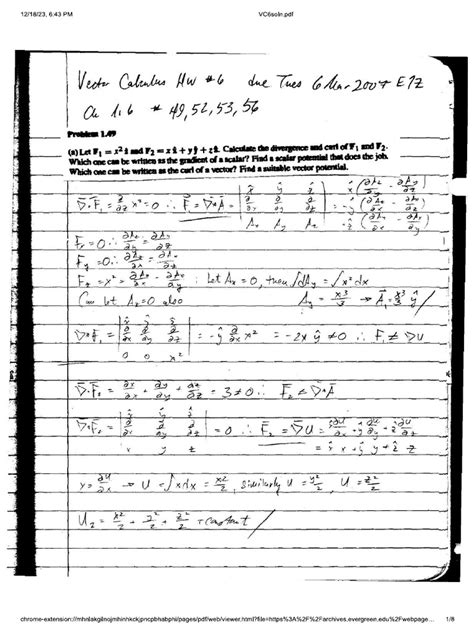 12/18/23, 6:43 PM VC6soln.pdf
Vector Calculus HW #6 due Tues 6 Mar 2007 EJZ
Ch 1.6 # 49, 52, 53, 56
Problem 1.49
(a) Let F₁ = x² ẑ and F₂ = x x̂ + y ŷ + z ẑ. Calculate the divergence and curl of F₁ and F₂.
Which one can be written as the gradient of a scalar? Find a scalar potential that does the job.
Which one can be written as the curl of a vector? Find a suitable vector potential.
∇·F₁ = ∂/∂z x² = 0 ∴ F = ∇×A = | x̂ ŷ ẑ ; ∂/∂x ∂/∂y ∂/∂z ; Aₓ A_y A_z | = x̂(∂A_z/∂y − ∂A_y/∂z) − ŷ(∂A_z/∂x − ∂Aₓ/∂z) + ẑ(∂A_y/∂x − ∂Aₓ/∂y)
Fₓ = 0 ∴ ∂A_z/∂y = ∂A_y/∂z
F_y = 0 ∴ ∂A_z/∂x = ∂Aₓ/∂z
F_z = x² = ∂A_y/∂x − ∂Aₓ/∂y ∴ Let Aₓ = 0, then ∫dA_y = ∫x² dx
Can let A_z = 0 also A_y = x³/3 → A₁ = x³/3 ŷ
∇×F₁ = | x̂ ŷ ẑ ; ∂/∂x ∂/∂y ∂/∂z ; 0 0 x² | = −ŷ ∂/∂x x² = −2x ŷ ≠ 0 ∴ F₁ ≠ ∇U
∇·F₂ = ∂x/∂x + ∂y/∂y + ∂z/∂z = 3 ≠ 0 ∴ F₂ ≠ ∇×A
∇×F₂ = | x̂ ŷ ẑ ; ∂/∂x ∂/∂y ∂/∂z ; x y z | = 0 ∴ F₂ = ∇U = x̂ ∂U/∂x + ŷ ∂U/∂y + ẑ ∂U/∂z
= x̂ x + ŷ y + ẑ z
x = ∂U/∂x → U = ∫x dx = x²/2, similarly U = y²/2, U = z²/2
U₂ = x²/2 + y²/2 + z²/2 + constant
chrome-extension://mhnlakgilnojmhinhkckjpncpbhabphi/pages/pdf/web/viewer.html?file=https%3A%2F%2Farchives.evergreen.edu%2Fwebpage… 1/8